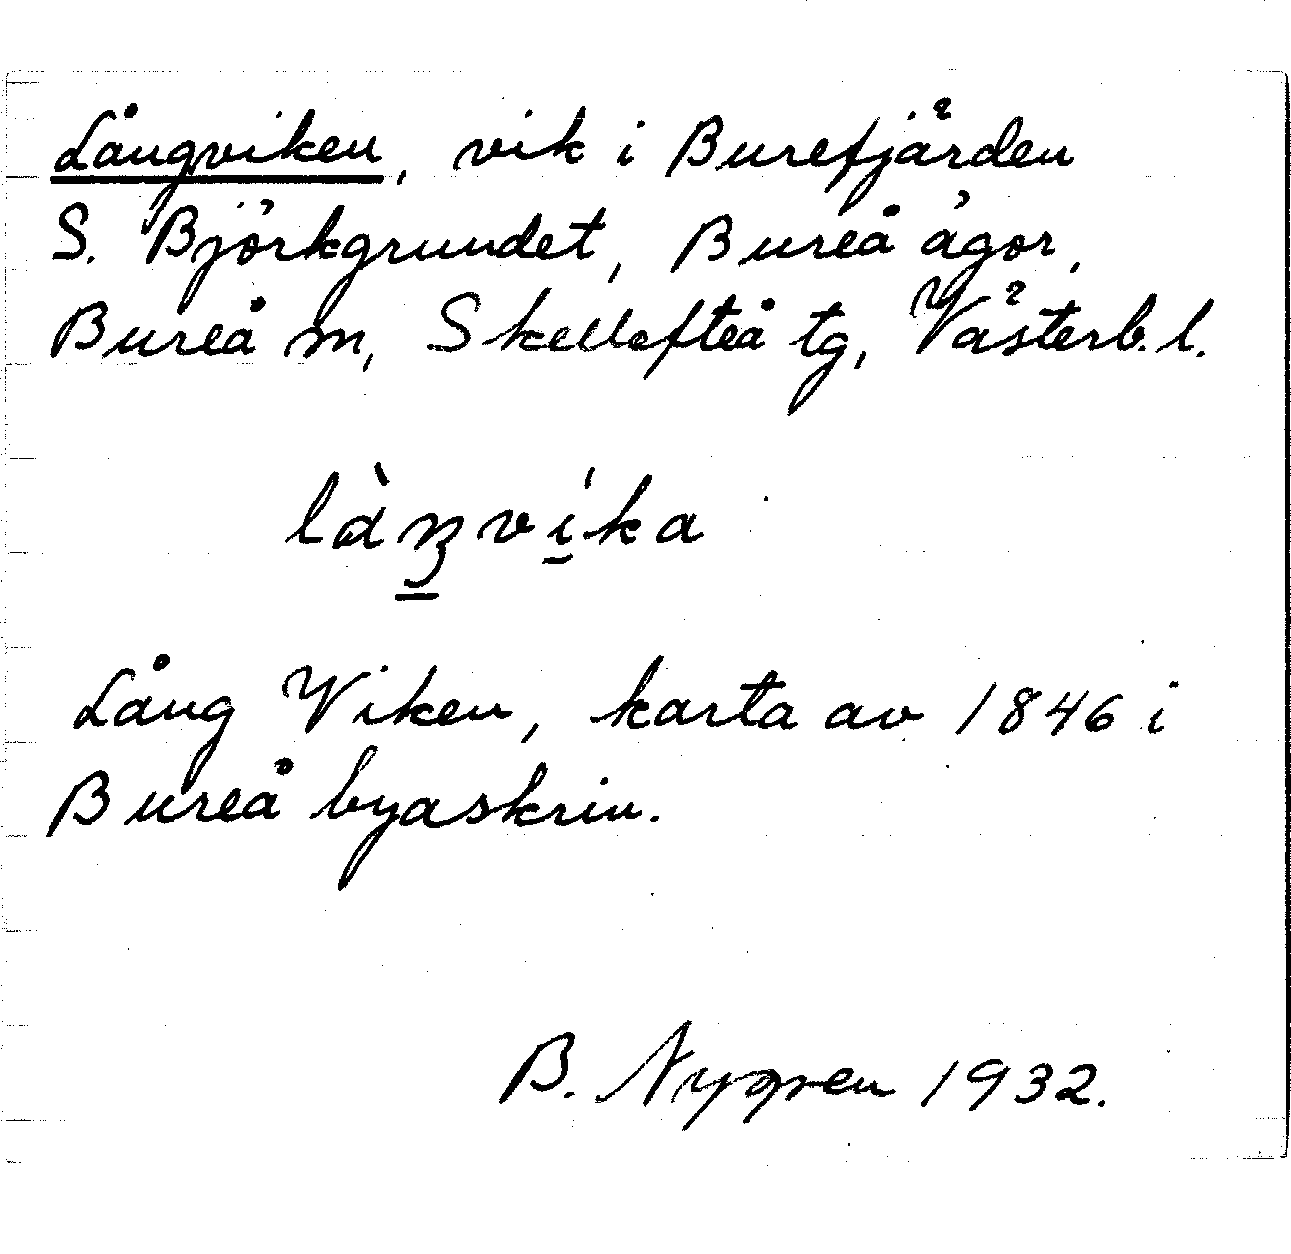 Långviken, vik i Burefjärden
S. Björkgrundet, Bureå ägor,
Bureå m, Skellefteå tg, Västerb. l.
Lång Viken, karta av 1846 i
Bureå byaskrin.
B. Nygren 1932.